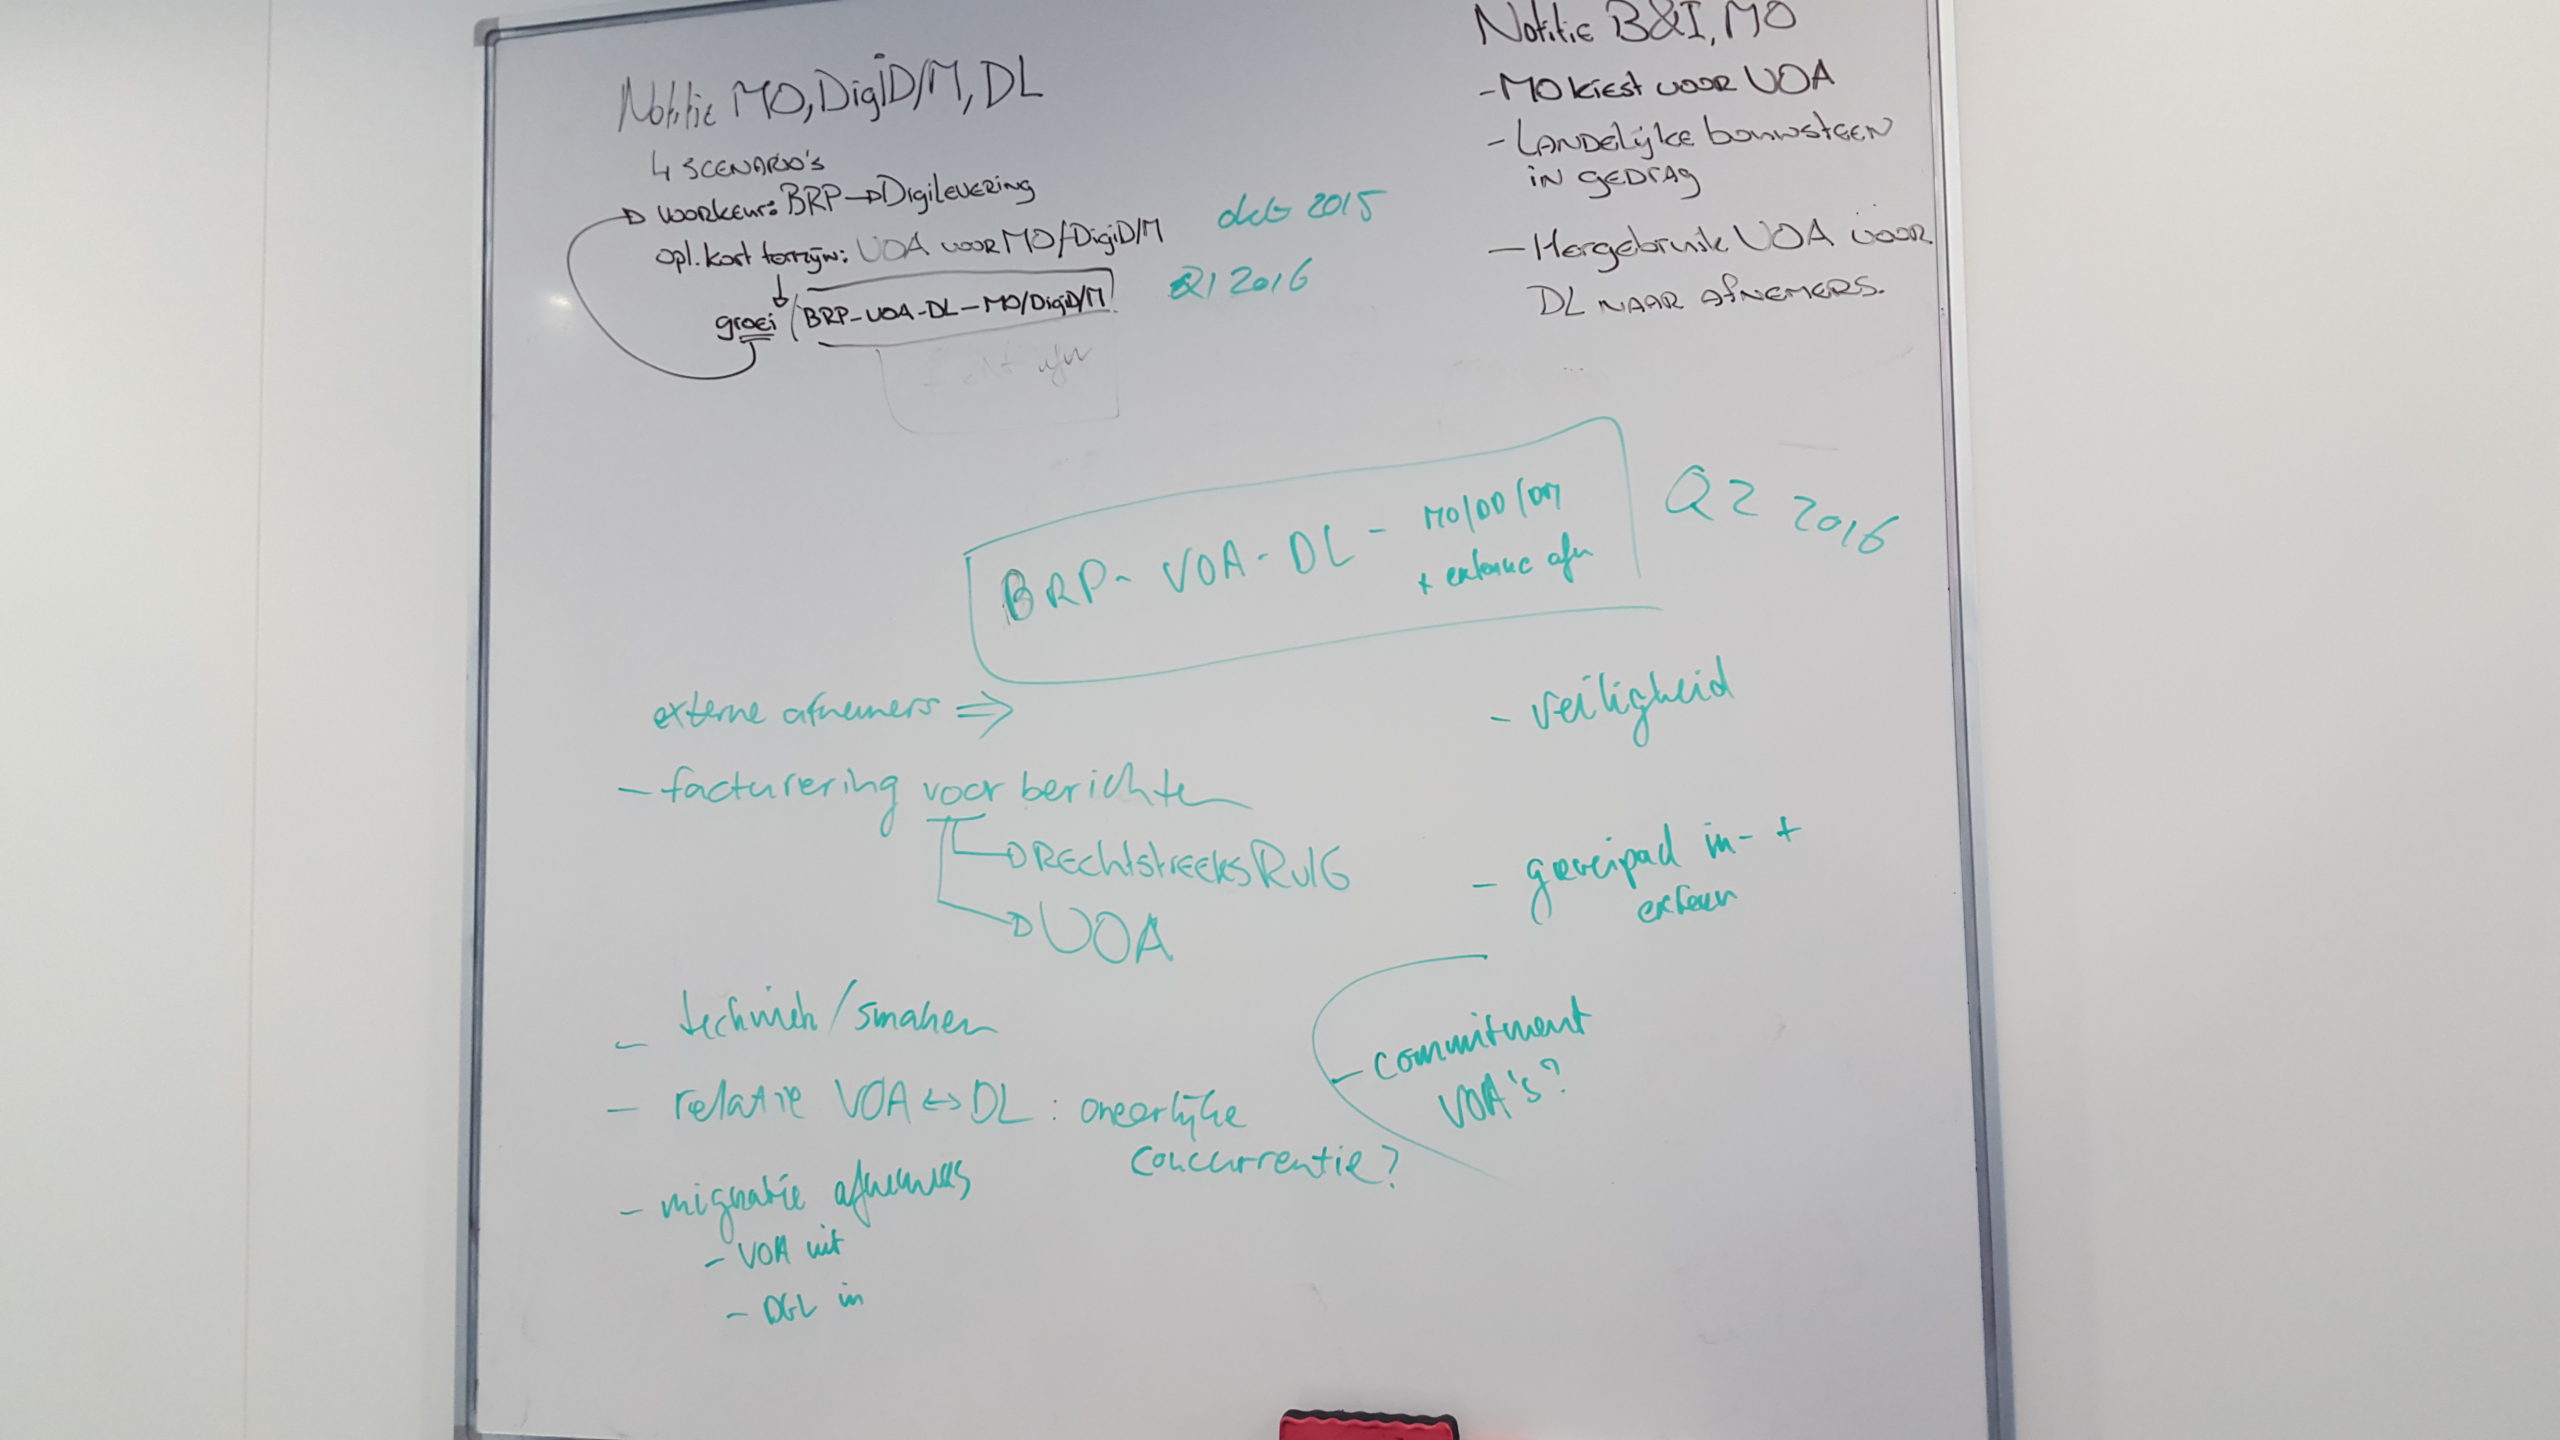 Notitie MO, DigiD/M, DL
4 SCENARIO'S
voorkeur: BRP → Digilevering
opl. kort termijn: VOA voor MO/DigiD/M
dec 2015
groei / BRP-VOA-DL-MO/DigiD/M
Q1 2016
afn
Notitie B&I, MO
- MO kiest voor VOA
- LANDELijke bouwsteen
in GEDRAG
- Hergebruik VOA voor
DL NAAR AFNEMERS.
BRP - VOA - DL - MO/DD/DM
+ externe afn
Q2 2016
externe afnemers ⇒
- facturering voor berichten
→ REchtstreeks RvIG
→ VOA
- techniek/smaken
- relatie VOA ↔ DL : oneerlijke
concurrentie?
- migratie afnemers
- VOA uit
- DGL in
- veiligheid
- groeipad in- +
extern
- commitment
VOA's?